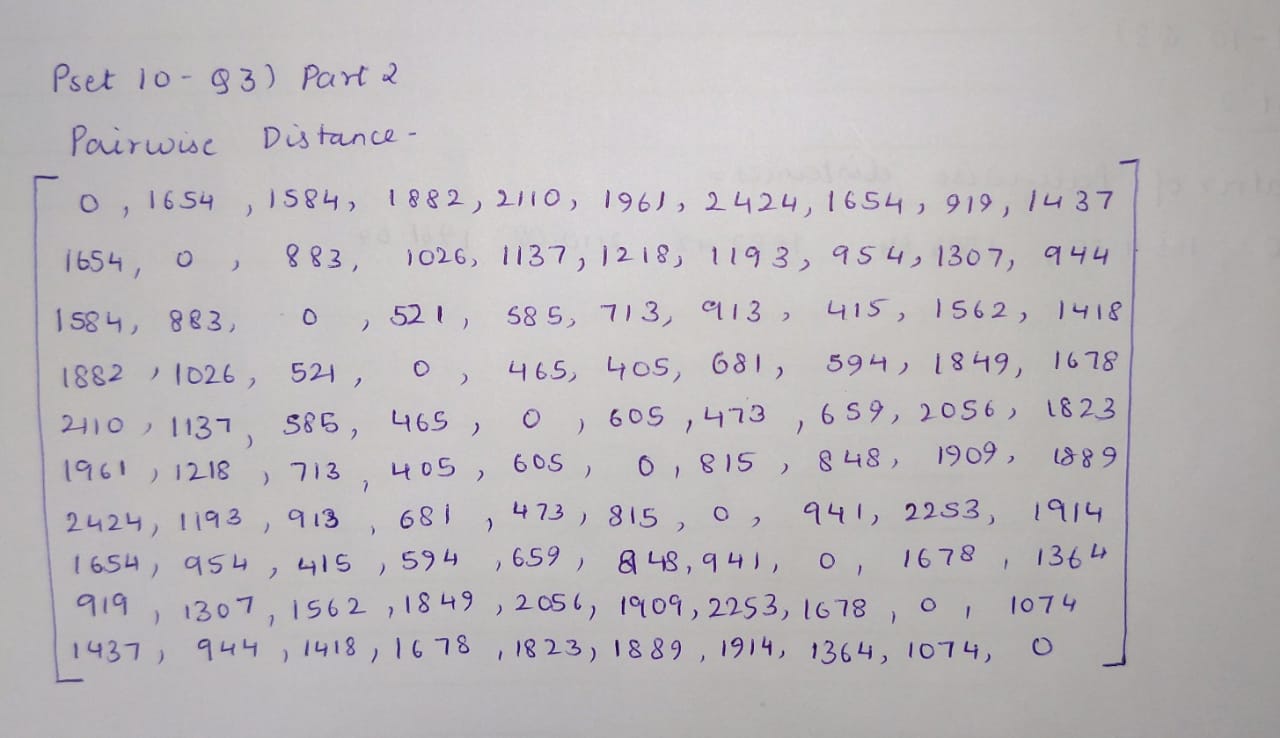 Pset 10 - Q3) Part 2
Pairwise Distance -
0, 1654, 1584, 1882, 2110, 1961, 2424, 1654, 919, 1437
1654, 0, 883, 1026, 1137, 1218, 1193, 954, 1307, 944
1584, 883, 0, 521, 585, 713, 913, 415, 1562, 1418
1882, 1026, 521, 0, 465, 405, 681, 594, 1849, 1678
2110, 1137, 585, 465, 0, 605, 473, 659, 2056, 1823
1961, 1218, 713, 405, 605, 0, 815, 848, 1909, 1889
2424, 1193, 913, 681, 473, 815, 0, 941, 2253, 1914
1654, 954, 415, 594, 659, 848, 941, 0, 1678, 1364
919, 1307, 1562, 1849, 2056, 1909, 2253, 1678, 0, 1074
1437, 944, 1418, 1678, 1823, 1889, 1914, 1364, 1074, 0